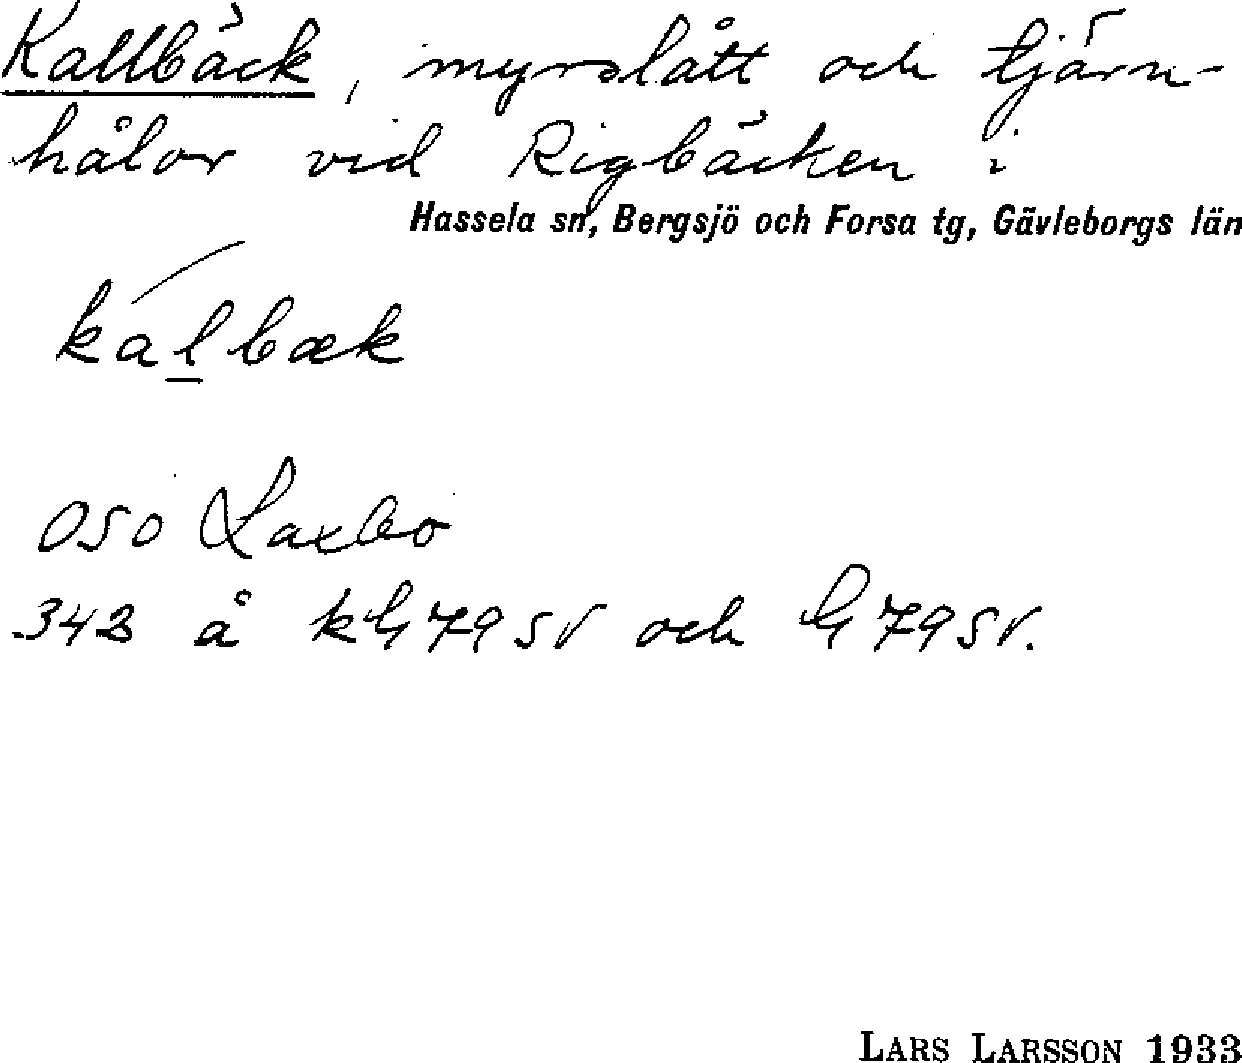 Kallbäck, myrslått och tjärn-
hålor vid Rigbäcken i
Hassela sn, Bergsjö och Forsa tg, Gävleborgs län
kalbæk
OSO Laxbo
343 å kG 79 SV och G 79 SV.
LARS LARSSON 1933